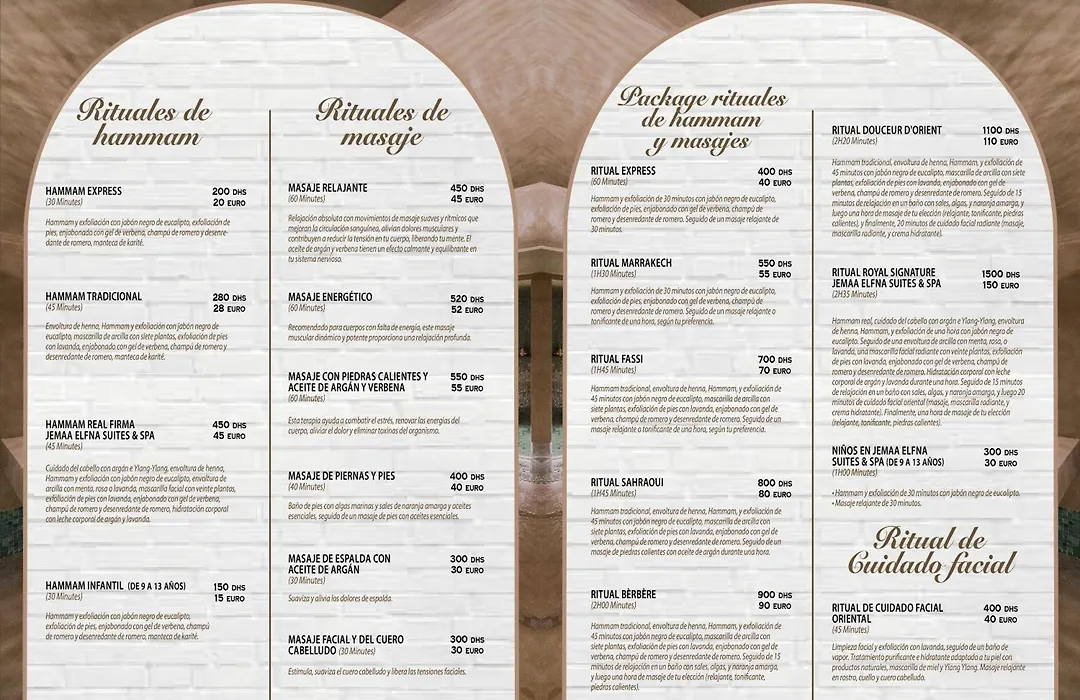 Rituales de
hammam
HAMMAM EXPRESS
200 DHS
(30 Minutes)
20 EURO
Hammam y exfoliación con jabón negro de eucalipto, exfoliación de
pies, enjabonado con gel de verbena, champú de romero y desenre-
dante de romero, manteca de karité.
HAMMAM TRADICIONAL
280 DHS
(45 Minutes)
28 EURO
Envoltura de henna, Hammam y exfoliación con jabón negro de
eucalipto, mascarilla de arcilla con siete plantas, exfoliación de pies
con lavanda, enjabonado con gel de verbena, champú de romero y
desenredante de romero, manteca de karité.
HAMMAM REAL FIRMA
450 DHS
JEMAA ELFNA SUITES & SPA
45 EURO
(45 Minutes)
Cuidado del cabello con argán e Ylang-Ylang, envoltura de henna,
Hammam y exfoliación con jabón negro de eucalipto, envoltura de
arcilla con menta, rosa o lavanda, mascarilla facial con veinte plantas,
exfoliación de pies con lavanda, enjabonado con gel de verbena,
champú de romero y desenredante de romero, hidratación corporal
con leche corporal de argán y lavanda.
HAMMAM INFANTIL (DE 9 A 13 AÑOS)
150 DHS
(30 Minutes)
15 EURO
Hammam y exfoliación con jabón negro de eucalipto,
exfoliación de pies, enjabonado con gel de verbena, champú
de romero y desenredante de romero, manteca de karité.
Rituales de
masaje
MASAJE RELAJANTE
450 DHS
(60 Minutes)
45 EURO
Relajación absoluta con movimientos de masaje suaves y rítmicos que
mejoran la circulación sanguínea, alivian dolores musculares y
contribuyen a reducir la tensión en tu cuerpo, liberando tu mente. El
aceite de argán y verbena tienen un efecto calmante y equilibrante en
tu sistema nervioso.
MASAJE ENERGÉTICO
520 DHS
(60 Minutes)
52 EURO
Recomendado para cuerpos con falta de energía, este masaje
muscular dinámico y potente proporciona una relajación profunda.
MASAJE CON PIEDRAS CALIENTES Y
550 DHS
ACEITE DE ARGÁN Y VERBENA
55 EURO
(60 Minutes)
Esta terapia ayuda a combatir el estrés, renovar las energías del
cuerpo, aliviar el dolor y eliminar toxinas del organismo.
MASAJE DE PIERNAS Y PIES
400 DHS
(40 Minutes)
40 EURO
Baño de pies con algas marinas y sales de naranja amarga y aceites
esenciales, seguido de un masaje de pies con aceites esenciales.
MASAJE DE ESPALDA CON
300 DHS
ACEITE DE ARGÁN
30 EURO
(30 Minutes)
Suaviza y alivia los dolores de espalda.
MASAJE FACIAL Y DEL CUERO
300 DHS
CABELLUDO (30 Minutes)
30 EURO
Estimula, suaviza el cuero cabelludo y libera las tensiones faciales.
Package rituales
de hammam
y masajes
RITUAL EXPRESS
400 DHS
(60 Minutes)
40 EURO
Hammam y exfoliación de 30 minutos con jabón negro de eucalipto,
exfoliación de pies, enjabonado con gel de verbena, champú de
romero y desenredante de romero. Seguido de un masaje relajante de
30 minutos.
RITUAL MARRAKECH
550 DHS
(1H30 Minutes)
55 EURO
Hammam y exfoliación de 30 minutos con jabón negro de eucalipto,
exfoliación de pies, enjabonado con gel de verbena, champú de
romero y desenredante de romero. Seguido de un masaje relajante o
tonificante de una hora, según tu preferencia.
RITUAL FASSI
700 DHS
(1H45 Minutes)
70 EURO
Hammam tradicional, envoltura de henna, Hammam, y exfoliación de
45 minutos con jabón negro de eucalipto, mascarilla de arcilla con
siete plantas, exfoliación de pies con lavanda, enjabonado con gel de
verbena, champú de romero y desenredante de romero. Seguido de un
masaje relajante o tonificante de una hora, según tu preferencia.
RITUAL SAHRAOUI
800 DHS
(1H45 Minutes)
80 EURO
Hammam tradicional, envoltura de henna, Hammam, y exfoliación de
45 minutos con jabón negro de eucalipto, mascarilla de arcilla con
siete plantas, exfoliación de pies con lavanda, enjabonado con gel de
verbena, champú de romero y desenredante de romero. Seguido de un
masaje de piedras calientes con aceite de argán durante una hora.
RITUAL BÈRBÈRE
900 DHS
(2H00 Minutes)
90 EURO
Hammam tradicional, envoltura de henna, Hammam, y exfoliación de
45 minutos con jabón negro de eucalipto, mascarilla de arcilla con
siete plantas, exfoliación de pies con lavanda, enjabonado con gel de
verbena, champú de romero y desenredante de romero. Seguido de 15
minutos de relajación en un baño con sales, algas, y naranja amarga,
y luego una hora de masaje de tu elección (relajante, tonificante,
piedras calientes).
RITUAL DOUCEUR D'ORIENT
1100 DHS
(2H20 Minutes)
110 EURO
Hammam tradicional, envoltura de henna, Hammam, y exfoliación de
45 minutos con jabón negro de eucalipto, mascarilla de arcilla con siete
plantas, exfoliación de pies con lavanda, enjabonado con gel de
verbena, champú de romero y desenredante de romero. Seguido de 15
minutos de relajación en un baño con sales, algas, y naranja amarga, y
luego una hora de masaje de tu elección (relajante, tonificante, piedras
calientes), y finalmente, 20 minutos de cuidado facial radiante (masaje,
mascarilla radiante, y crema hidratante).
RITUAL ROYAL SIGNATURE
1500 DHS
JEMAA ELFNA SUITES & SPA
150 EURO
(2H35 Minutes)
Hammam real, cuidado del cabello con argán e Ylang-Ylang, envoltura
de henna, Hammam, y exfoliación de una hora con jabón negro de
eucalipto. Seguido de una envoltura de arcilla con menta, rosa, o
lavanda, una mascarilla facial radiante con veinte plantas, exfoliación
de pies con lavanda, enjabonado con gel de verbena, champú de
romero y desenredante de romero. Hidratación corporal con leche
corporal de argán y lavanda durante una hora. Seguido de 15 minutos
de relajación en un baño con sales, algas, y naranja amarga, y luego 20
minutos de cuidado facial oriental (masaje, mascarilla radiante, y
crema hidratante). Finalmente, una hora de masaje de tu elección
(relajante, tonificante, piedras calientes).
NIÑOS EN JEMAA ELFNA
300 DHS
SUITES & SPA (DE 9 A 13 AÑOS)
30 EURO
(1H00 Minutes)
• Hammam y exfoliación de 30 minutos con jabón negro de eucalipto.
• Masaje relajante de 30 minutos.
Ritual de
Cuidado facial
RITUAL DE CUIDADO FACIAL
400 DHS
ORIENTAL
40 EURO
(45 Minutes)
Limpieza facial y exfoliación con lavanda, seguido de un baño de
vapor. Tratamiento purificante e hidratante adaptado a tu piel con
productos naturales, mascarilla de miel y Ylang Ylang. Masaje relajante
en rostro, cuello y cuero cabelludo.